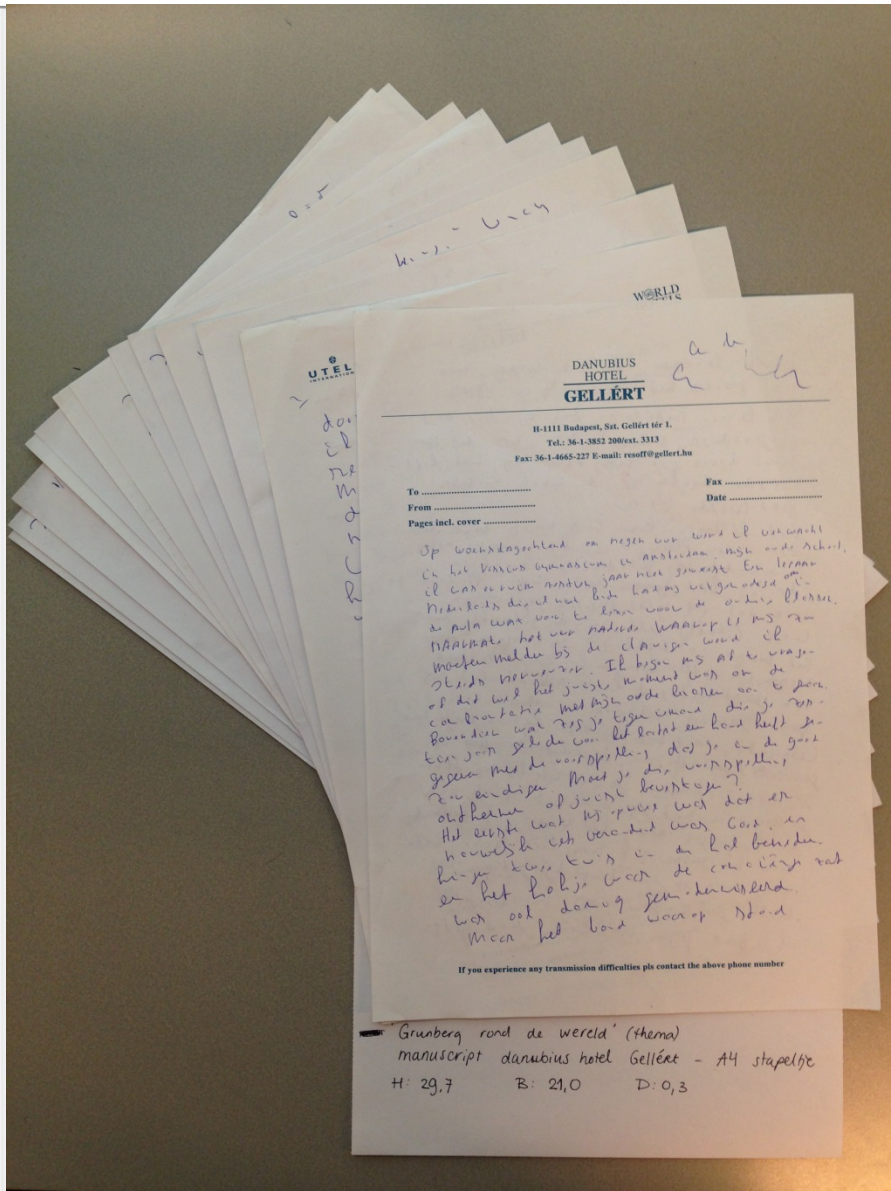 WORLD
UTELL
INTERNATIONAL
DANUBIUS
HOTEL
GELLÉRT
H-1111 Budapest, Szt. Gellért tér 1.
Tel.: 36-1-3852 200/ext. 3313
Fax: 36-1-4665-227 E-mail: resoff@gellert.hu
To
Fax
From
Date
Pages incl. cover
Op woensdagochtend om negen uur werd ik verwacht
in het Vossius Gymnasium in Amsterdam, mijn oude school.
ik was er ruim jaar niet geweest. Een leraar
Nederlands die ik niet had uitgenodigd om in
de aula wat voor te lezen voor de klassen.
Naarmate het uur naderde waarop ik mij zou
moeten melden bij de werd ik
steeds nerveuzer. Ik begon mij af te vragen
of dit wel het juiste moment was om de
confrontatie met mijn oude leraren aan te gaan.
Bovendien wat zeg je tegen iemand die je
tien jaar geleden voor het laatst een hand heeft
gegeven met de voorspelling dat je in de goot
zou eindigen. Moet je die voorspelling
ontkennen of juist bevestigen?
Het eerste wat mij opviel was dat er
nauwelijks iets veranderd was. Goed, er
hingen twee in de hal beneden
en het hokje waar de conciërge zat
was ook gemoderniseerd.
Maar het bord waarop stond
If you experience any transmission difficulties pls contact the above phone number
'Grunberg rond de wereld' (thema)
manuscript danubius hotel Gellért - A4 stapeltje
H: 29,7 B: 21,0 D: 0,3